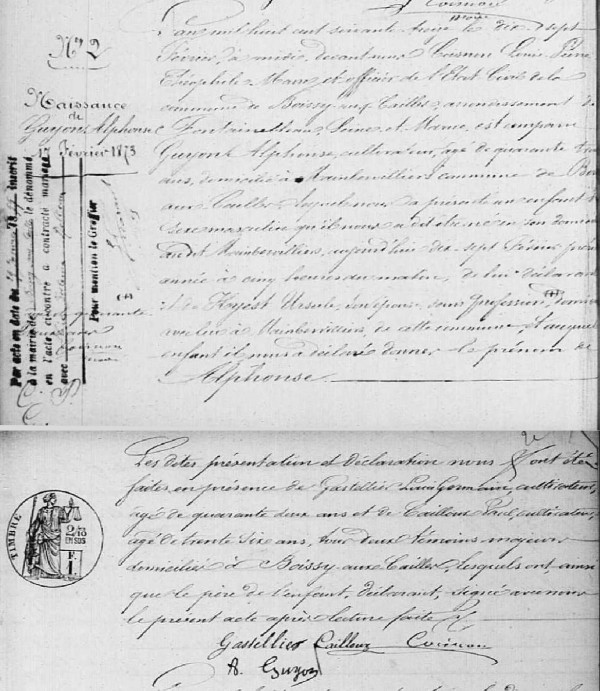 Coisnon
maire
N° 2
Naissance
de
Guyon Alphonse
17 Février 1873
L'an mil huit cent soixante treize le dix-sept
Février, à midi, devant nous Coisnon Louis Pierre
Théophile, Maire et officier de l'Etat Civil de la
commune de Boissy-aux-Cailles, arrondissement de
Fontainebleau, Seine-et-Marne, est comparu
Guyon Alphonse, cultivateur, âgé de quarante
ans, domicilié à Mainbervilliers commune de
aux Cailles, lequel nous a présenté un enfant
sexe masculin qu'il nous a dit être né en son domicile
audit Mainbervilliers, aujourd'hui dix-sept Février présente
année à cinq heures du matin, de lui déclarant
et de Hoyest Ursule, son épouse, sans profession,
avec lui à Mainbervilliers de cette commune et auquel
enfant il nous a déclaré donner le prénom de
Alphonse
Par acte en date du inscrit
à la mairie de le dénommé
en l'acte ci-contre a contracté mariage
avec
Pour mention le Greffier
Les dites présentation et déclaration nous ont été
faites en présence de Gastellier Louis Germain, cultivateur,
âgé de quarante deux ans et de Cailleux Paul, cultivateur,
âgé de trente six ans, tous deux témoins majeurs
domiciliés à Boissy-aux-Cailles, lesquels ont, ainsi
que le père de l'enfant, déclarant, signé avec nous
le présent acte après lecture faite
TIMBRE
2/10
EN SUS
Gastellier Cailleux Coisnon
A. Guyon